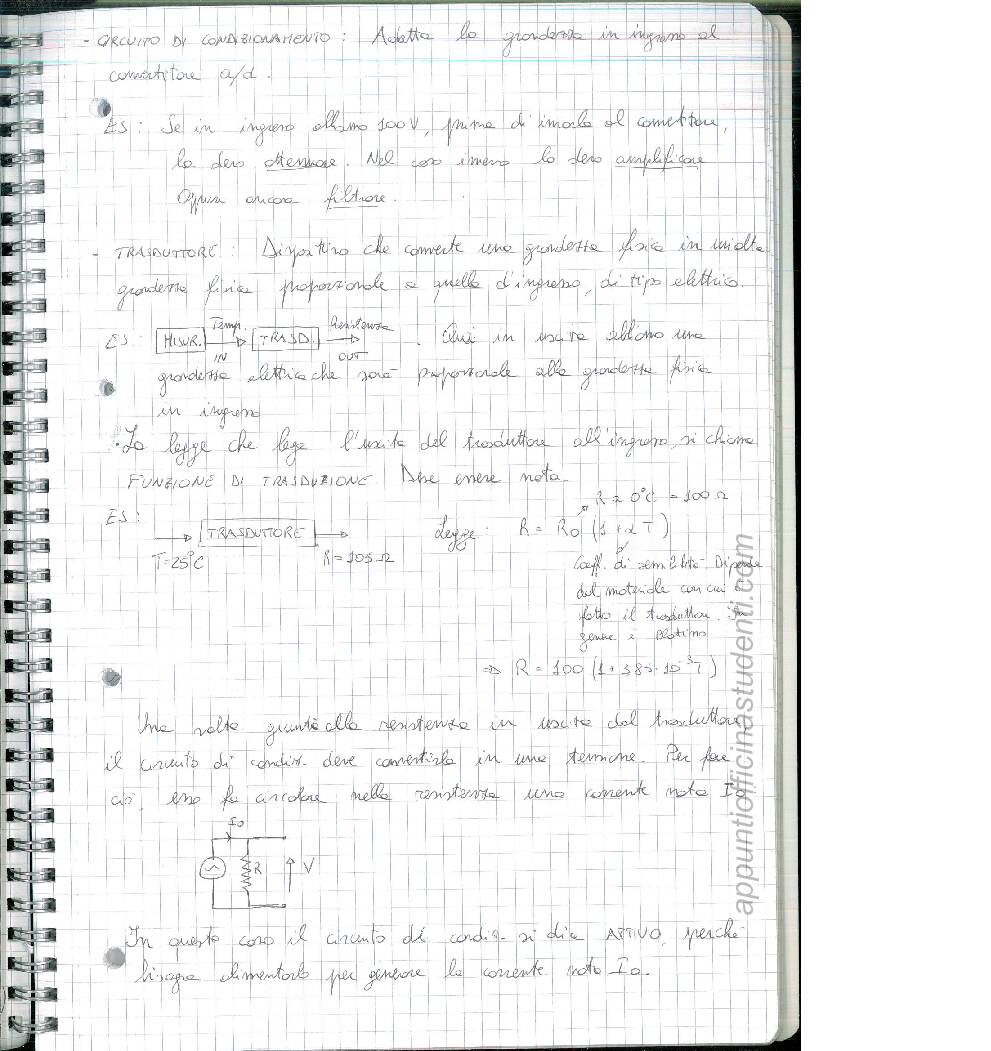 - CIRCUITO DI CONDIZIONAMENTO : Adatta la grandezza in ingresso al
convertitore a/d.
ES : Se in ingresso abbiamo 100V, prima di inviarla al convertitore,
la devo attenuare. Nel caso inverso la devo amplificare
Oppure ancora filtrare.
- TRASDUTTORE : Dispositivo che converte una grandezza fisica in un'altra
grandezza fisica proporzionale a quella d'ingresso, di tipo elettrico.
ES : MISUR. Temp. IN TRASD. Resistenza OUT . Qui in uscita abbiamo una
grandezza elettrica che sarà proporzionale alla grandezza fisica
in ingresso
La legge che lega l'uscita del trasduttore all'ingresso, si chiama
FUNZIONE DI TRASDUZIONE Deve essere nota.
R a 0°C = 100 Ω
ES :
TRASDUTTORE Legge : R = R0 (1 + α T)
T=25°C R = 105 Ω
Coeff. di sensibilità. Dipende
dal materiale con cui è
fatto il trasduttore. In
genere è Platino
⇒ R = 100 (1 + 385·10⁻³T)
Una volta giunta alla resistenza in uscita dal trasduttore
il circuito di condiz. deve convertirla in una tensione. Per fare
ciò, esso fa circolare nella resistenza una corrente nota I0
I0
R V
In questo caso il circuito di condiz. si dice ATTIVO, perché
bisogna alimentarlo per generare la corrente nota I0.
appuntiofficinastudenti.com